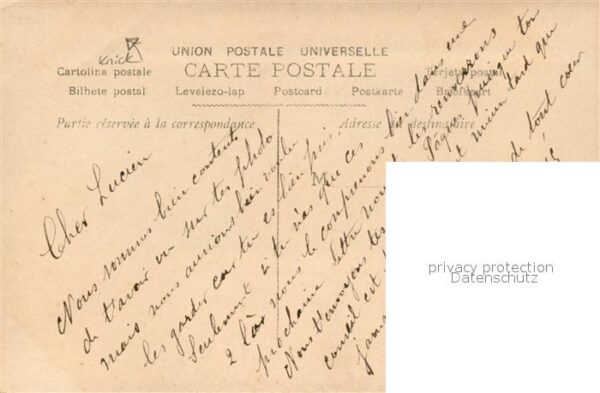 Knick
UNION POSTALE UNIVERSELLE
Cartolina postale CARTE POSTALE Tarjeta postal
Bilhete postal Levelezo-lap Postcard Postkarte Briefkaart
Partie réservée à la correspondance Adresse du destinataire
Cher Lucien
Nous sommes bien contents
de t'avoir vu sur tes photo
mais nous aurions bien voulu
les garder car tu es bien pris
Seulement si tu n'as que ces
2 là nous le comprenons bien dans une
prochaine lettre nous les renverrons
Nous t'envoyons tes Pâques puisque ton
conseil est mieux tard que
jamais de tout coeur
privacy protection
Datenschutz